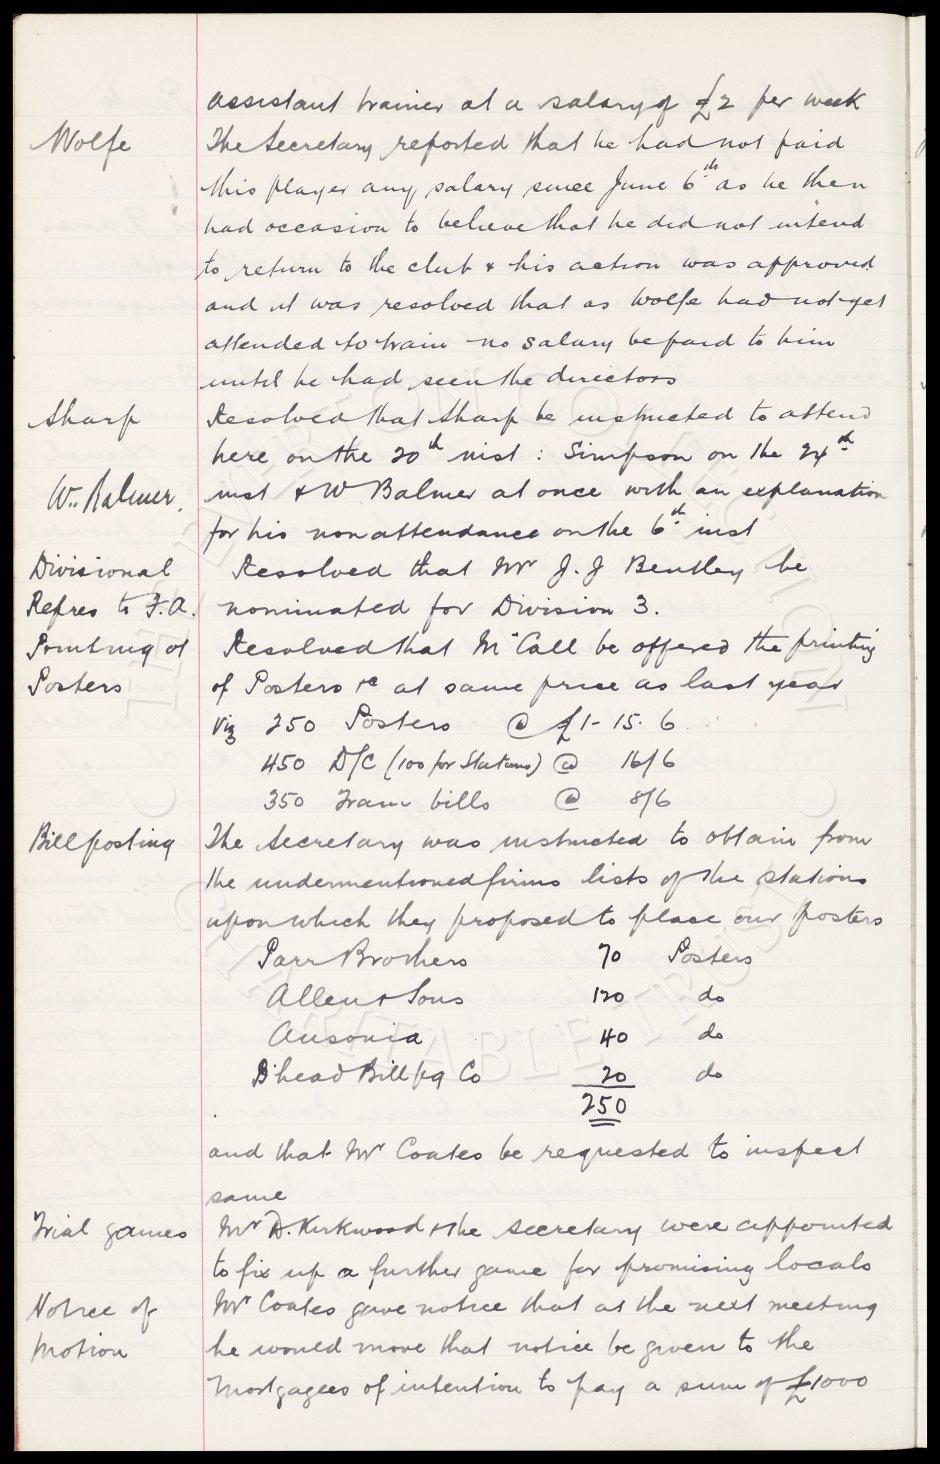 assistant trainer at a salary of £2 per week
Wolfe The Secretary reported that he had not paid
this player any salary since June 6th as he then
had occasion to believe that he did not intend
to return to the club & his action was approved
and it was resolved that as Wolfe had not yet
attended to train no salary be paid to him
until he had seen the directors
Sharp Resolved that Sharp be instructed to attend
here on the 20th inst : Simpson on the 24th
W. Balmer. inst & W Balmer at once with an explanation
for his non attendance on the 6th inst
Divisional Resolved that Mr J. J Bentley be
Repres to F.A. nominated for Division 3.
Printing of Resolved that McCall be offered the printing
Posters of Posters &c at same price as last year
Viz 250 Posters @ £1-15.6
450 D/C (100 for Stations) @ 16/6
350 Tram bills @ 8/6
Billposting The Secretary was instructed to obtain from
the undermentioned firms lists of the stations
upon which they proposed to place our posters
Parr Brothers 70 Posters
Allen & Sons 120 do
Ausonia 40 do
B'head Billpg Co 20 do
250
and that Mr Coates be requested to inspect
same
Trial games Mr D. Kirkwood & the secretary were appointed
to fix up a further game for promising locals
Notice of Mr Coates gave notice that at the next meeting
Motion he would move that notice be given to the
Mortgagees of intention to pay a sum of £1000
EVERTON COLLECTION CHARITABLE TRUST